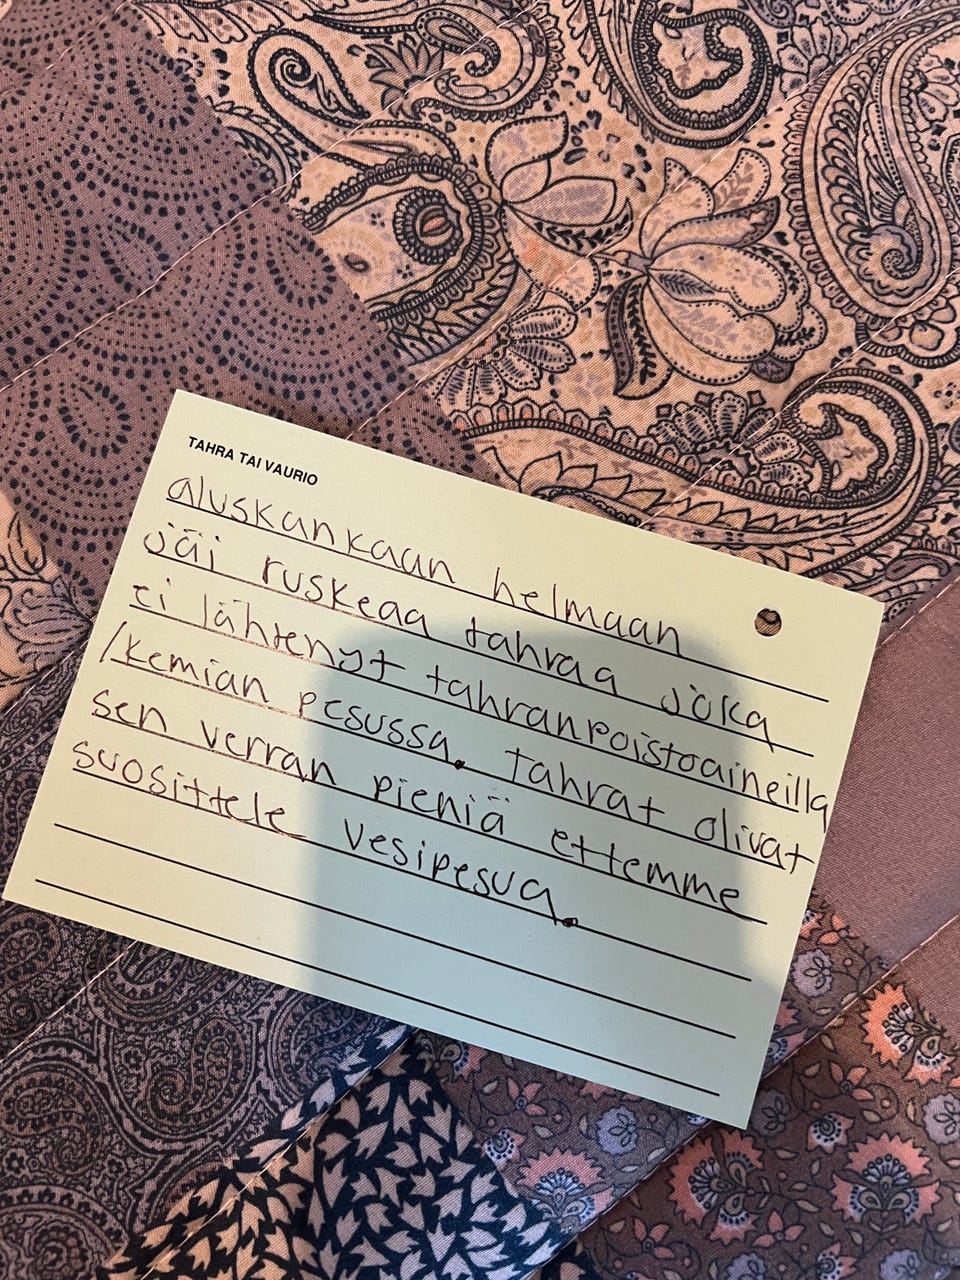 TAHRA TAI VAURIO
aluskankaan helmaan
jäi ruskeaa tahraa joka
ei lähtenyt tahranpoistoaineilla
/kemian pesussa. tahrat olivat
sen verran pieniä ettemme
suosittele vesipesua.